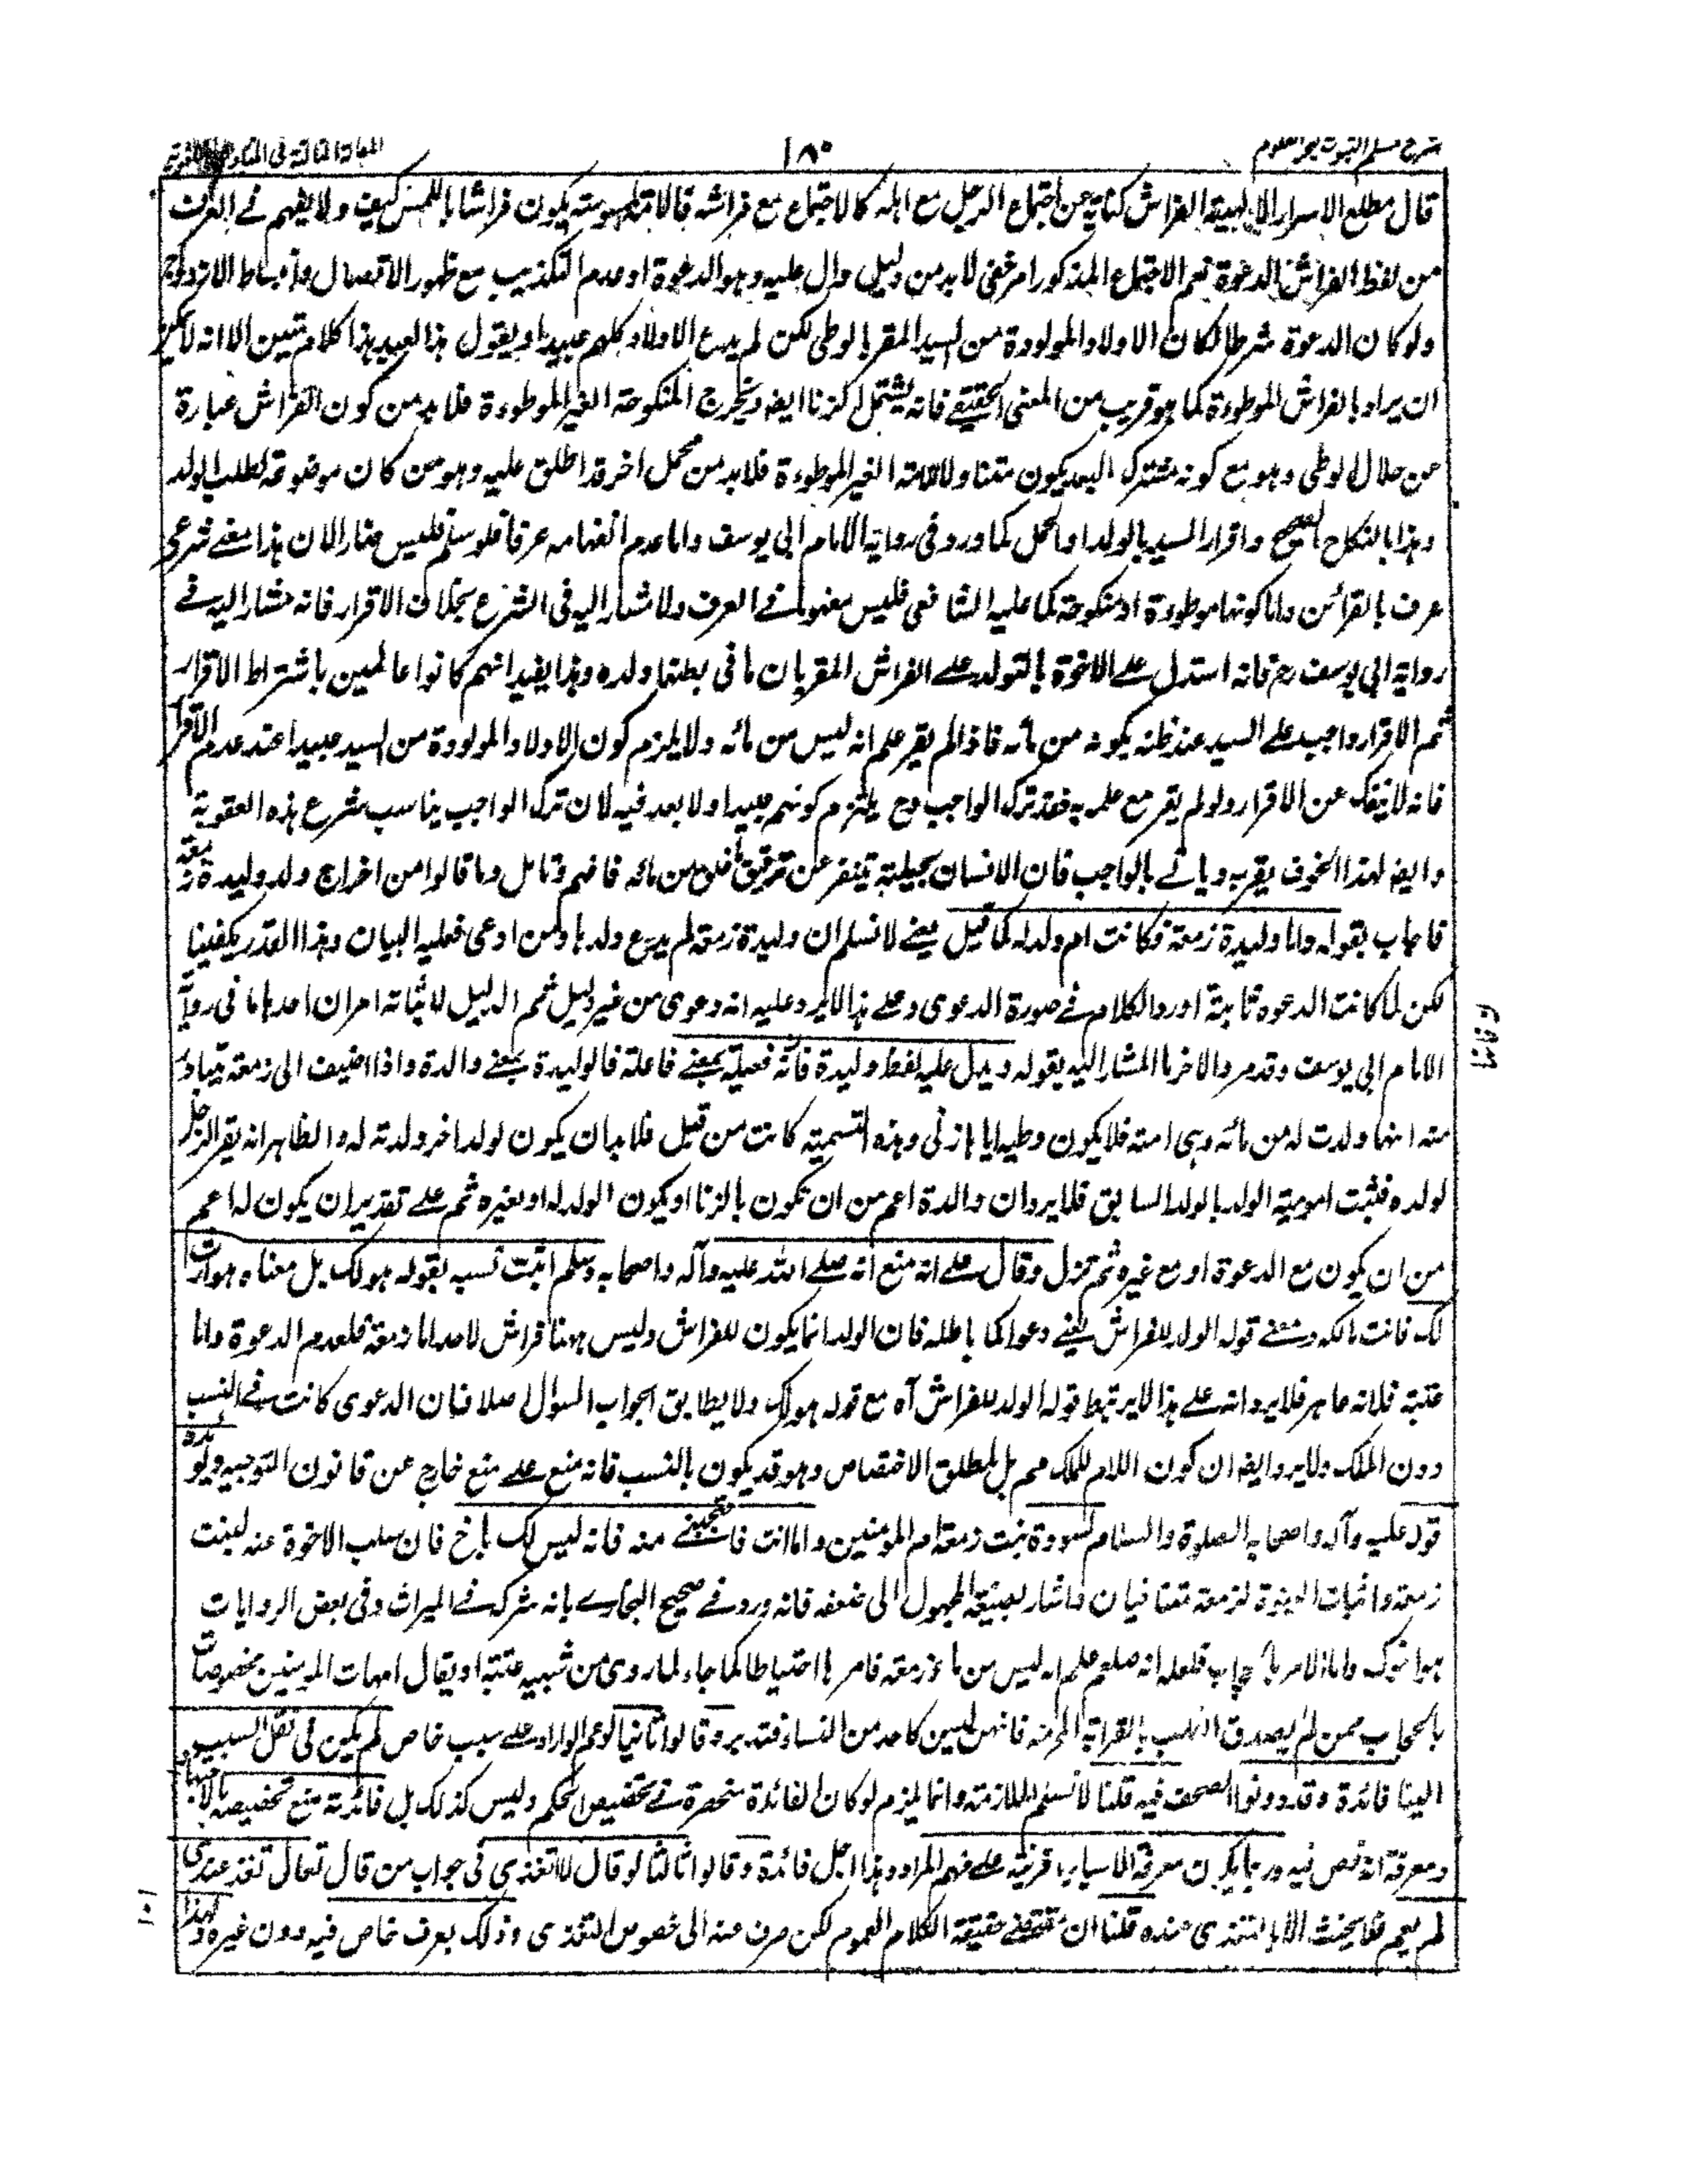 شرح مسلم الثبوت بحر العلوم
١٨٠
المقالة الثالثة فى المبادى اللغوية
قال مطلع الاسرار الالهية الفراش كناية عن اجتماع الرجل مع اهله كالاجتماع مع فراشه فالامة يكون فراشا باللمس كيف ولا يفهم فى العرف
من لفظ الفراش الدعوة نعم الاجتماع المذكور امر خفى لا بد من دليل دال عليه وهو الدعوة او عدم التكذيب مع ظهور الاتصال وانبساط الازدواج
ولو كان الدعوة شرطا لكان الاولاد المولودة من السيد المقر بالوطى لكن لم يدع الاولاد كلهم عبيدا ويقول هذا العبد هذا كلام متين الا انه لا يمكن
ان يراد بالفراش الموطوءة كما هو قريب من المعنى الحقيقى فانه يشتمل الزنا ايضا ويخرج المنكوحة الغير الموطوءة فلا بد من كون الفراش عبارة
من حلال الوطى وهو مع كونه مشترك البعد يكون متناولا للامة الغير الموطوءة فلا بد من محمل اخر قد اطلق عليه وهو من كان موضوعة لطلب الولد
وهذا بالنكاح الصحيح واقرار السيد بالولد او الحمل كما ورد فى رواية الامام ابى يوسف واما عدم انفهامه عرفا فلو سلم فليس ضارا لان هذا معنى شرعى
عرف بالقرائن واما كونها موطوءة او منكوحة كما عليه الشافعى فليس مفهوما فى العرف ولا مشارا اليه فى الشرع بخلاف الاقرار فانه مشار اليه فى
رواية ابى يوسف رح فانه استدل على الاخوة بالتولد على الفراش المقر بان ما فى بطنها ولده وهذا يفيد انهم كانوا عالمين باشتراط الاقرار
ثم الاقرار واجب على السيد عند ظنه بكونه من مائه فاذا لم يقر علم انه ليس من مائه ولا يلزم كون الاولاد المولودة من السيد عبيدا عند عدم الاقرار
فانه لا ينفك عن الاقرار ولو لم يقر مع علمه به فقد ترك الواجب وح يلتزم كونهم عبيدا ولا بعد فيه لان ترك الواجب يناسب شرع هذه العقوبة
وايضا لهذا الخوف يقر به وياتى بالواجب فان الانسان بجبلته يتنفر عن ترقيق من مائه فافهم وتامل وما قالوا من اخراج ولد وليدة زمعة
فاجاب بقوله واما وليدة زمعة فكانت ام ولد له كما قيل يعنى لا نسلم ان وليدة زمعة لم يدع ولدها ومن ادعى فعليه البيان وهذا القدر يكفينا
لكن لما كانت الدعوة ثابتة اورد الكلام فى صورة الدعوى وعلى هذا لا يرد عليه انه دعوى من غير دليل ثم الدليل لاثباته امران احدهما ما فى رواية
الامام ابى يوسف وقد مر والاخر ما المشار اليه بقوله ويدل عليه لفظ وليدة فانه فعيلة بمعنى فاعلة فالوليدة بمعنى والدة واذا اضيف الى زمعة يتبادر
منه انها ولدت له من مائه وهى امته فلا يكون وطيه اياها زنى وهذه التسمية كانت من قبل فلا بد ان يكون لولد اخر ولدته له والظاهر انه يقر الرجل
لولده فثبت امومية الولد بالولد السابق فلا يرد ان والدة اعم من ان تكون بالزنا او يكون الولد له او لغيره ثم على تقدير ان يكون له اعم
من ان يكون مع الدعوة او مع غيره ثم تنزل وقال على انه منع انه صلى الله عليه وآله واصحابه وسلم اثبت نسبه بقوله هو لك بل معناه هو ارث
لك فانت مالكه ومعنى قوله الولد للفراش يعنى دعواكما باطلة فان الولد انما يكون للفراش وليس ههنا فراش لاحد اما زمعة فلعدم الدعوة واما
عتبة فلانه عاهر فلا يرد انه على هذا لا يرتبط قوله الولد للفراش آه مع قوله هو لك ولا يطابق الجواب السؤال اصلا فان الدعوى كانت فى النسب
دون الملك ولا يرد ايضا ان كون اللام للملك مم بل لمطلق الاختصاص وهو قد يكون بالنسب فانه منع على منع خارج عن قانون التوجيه ويؤيده
قوله عليه وآله واصحابه الصلوة والسلام لسودة بنت زمعة ام المومنين واما انت فاحتجبى منه فانه ليس لك باخ فان سلب الاخوة عنه لبنت
زمعة واثبات البنوة لزمعة متنافيان واشار بصيغة المجهول الى ضعفه فانه ورد فى صحيح البخارى بانه شرك فى الميراث وفى بعض الروايات
هو اخوك واما الامر بالحجاب فلعله انه صلعم علم انه ليس من ماء زمعة فامر بها احتياطا كما جاء لما روى من شبيه عتبة او يقال امهات المومنين مخصوصات
بالحجاب ممن لم يصدق النسب بالقرابة المحرمة فانهن ليس كاحد من النساء فتدبر وقالوا ثانيا لو عم الوارد على سبب خاص لم يكن فى نقل السبب
الينا فائدة وقد دونوا الصحف فيه قلنا لا نسلم الملازمة وانما يلزم لو كان الفائدة منحصرة فى تخصيص الحكم وليس كذلك بل فائدته منع تخصيصه بالاجتهاد
ومعرفة انه نص فيه وربما يكون معرفة الاسباب قرينة على فهم المراد وهذا اجل فائدة وقالوا ثالثا لو قال لا تغدى فى جواب من قال تعال تغد عندى
لم يعم فلا يحنث الا بالتغدى عنده قلنا ان مقتضى حقيقة الكلام العموم لكن صرف عنه الى خصوص التغدى وذلك بعرف خاص فيه دون غيره ولهذا